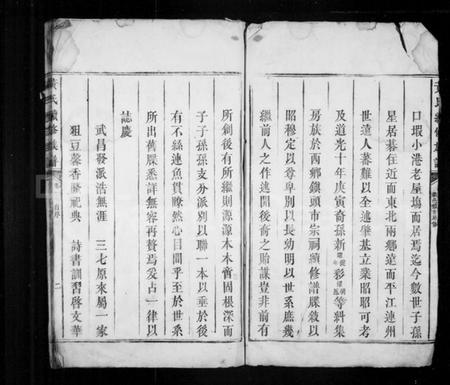 口瑕小港老屋塲而居焉迄今數世子孫
星居碁佈近而東北兩鄉遠而平江連州
世遠人蕃難以全述肇基立業昭昭可考
及道光十年庚寅裔孫新彩等糾集
房族於西鄉鎮頭市宗祠續修牒敘以
昭穆定以尊卑別以長幼明以世系庶幾
繼前人之作述開後裔之貽謀豈非前有
所創後有所繼則源源木本實固根深而
子子孫孫支分派別以聯一本以垂於後
有不絲連魚貫瞭然心目間乎至於世系
所出舊牒悉詳無容再贅焉爰占一律以
誌慶
武昌發派浩無涯 三七原來屬一家
俎豆馨香發祀典 詩書訓習啓文華